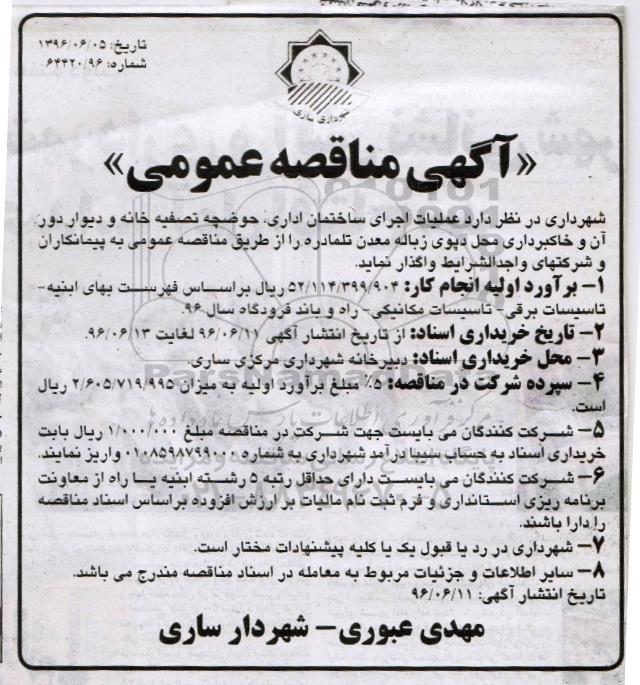 تاریخ: ۱۳۹۶/۰۶/۰۵
شماره: ۶۴۴۲۰/۹۶
شهرداری ساری
«آگهی مناقصه عمومی»
شهرداری در نظر دارد عملیات اجرای ساختمان اداری، حوضچه تصفیه خانه و دیوار دور
آن و خاکبرداری محل دپوی زباله معدن تلمادره را از طریق مناقصه عمومی به پیمانکاران
و شرکتهای واجدالشرایط واگذار نماید.
۱– برآورد اولیه انجام کار: ۵۲/۱۱۴/۳۹۹/۹۰۴ ریال براساس فهرست بهای ابنیه-
تاسیسات برقی- تاسیسات مکانیکی- راه و باند فرودگاه سال ۹۶.
۲– تاریخ خریداری اسناد: از تاریخ انتشار آگهی ۹۶/۰۶/۱۱ لغایت ۹۶/۰۶/۱۳.
۳– محل خریداری اسناد: دبیرخانه شهرداری مرکزی ساری.
۴– سپرده شرکت در مناقصه: ۵٪ مبلغ برآورد اولیه به میزان ۲/۶۰۵/۷۱۹/۹۹۵ ریال
است.
۵– شرکت کنندگان می بایست جهت شرکت در مناقصه مبلغ ۱/۰۰۰/۰۰۰ ریال بابت
خریداری اسناد به حساب سیبا درآمد شهرداری به شماره ۰۱۰۸۵۹۸۷۹۹۰۰۰ واریز نمایند.
۶– شرکت کنندگان می بایست دارای حداقل رتبه ۵ رشته ابنیه یا راه از معاونت
برنامه ریزی استانداری و فرم ثبت نام مالیات بر ارزش افزوده براساس اسناد مناقصه
را دارا باشند.
۷– شهرداری در رد یا قبول یک یا کلیه پیشنهادات مختار است.
۸– سایر اطلاعات و جزئیات مربوط به معامله در اسناد مناقصه مندرج می باشد.
تاریخ انتشار آگهی: ۹۶/۰۶/۱۱
مهدی عبوری– شهردار ساری